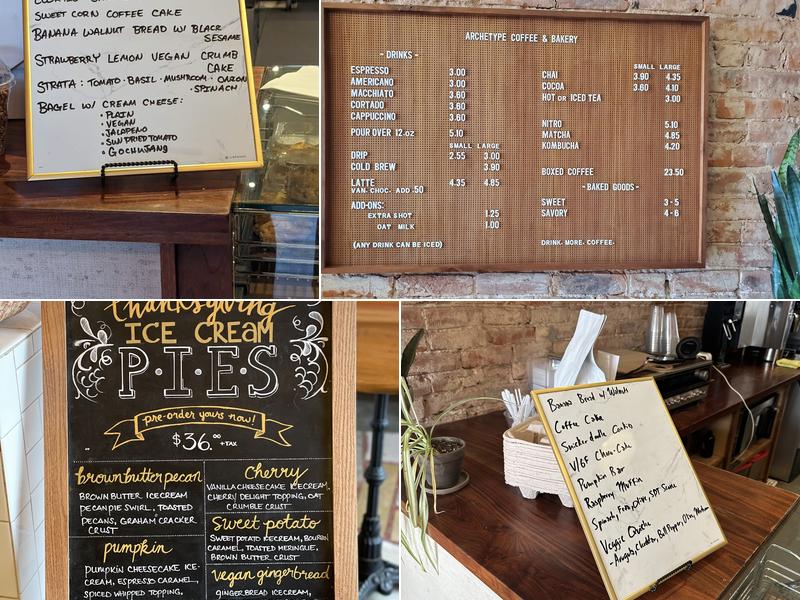 SWEET CORN COFFEE CAKE
BANANA WALNUT BREAD W/ BLACK
SESAME
STRAWBERRY LEMON VEGAN CRUMB
CAKE
STRATA: TOMATO · BASIL · MUSHROOM · ONION
· SPINACH
BAGEL W/ CREAM CHEESE:
· PLAIN
· VEGAN
· JALAPEÑO
· SUN DRIED TOMATO
· GOCHUJANG
ARCHETYPE COFFEE & BAKERY
- DRINKS -
ESPRESSO 3.00
AMERICANO 3.00
MACCHIATO 3.60
CORTADO 3.60
CAPPUCCINO 3.60
POUR OVER 12.oz 5.10
SMALL LARGE
DRIP 2.55 3.00
COLD BREW 3.90
LATTE 4.35 4.85
VAN. CHOC. ADD .50
ADD-ONS:
EXTRA SHOT 1.25
OAT MILK 1.00
(ANY DRINK CAN BE ICED)
SMALL LARGE
CHAI 3.90 4.35
COCOA 3.60 4.10
HOT or ICED TEA 3.00
NITRO 5.10
MATCHA 4.85
KOMBUCHA 4.20
BOXED COFFEE 23.50
- BAKED GOODS -
SWEET 3-5
SAVORY 4-6
DRINK. MORE. COFFEE.
thanksgiving
ICE CREAM
P·I·E·S
pre-order yours now!
$36.00 +TAX
brown butter pecan
BROWN BUTTER ICECREAM
PECAN PIE SWIRL, TOASTED
PECANS, GRAHAM CRACKER
CRUST
pumpkin
PUMPKIN CHEESECAKE ICE-
CREAM, ESPRESSO CARAMEL,
SPICED WHIPPED TOPPING,
Cherry
VANILLA CHEESECAKE ICECREAM,
CHERRY DELIGHT TOPPING, OAT
CRUMBLE CRUST
Sweet potato
SWEET POTATO ICECREAM, BOURBON
CARAMEL, TOASTED MERINGUE,
BROWN BUTTER CRUST
vegan gingerbread
GINGERBREAD ICECREAM,
Banana Bread w/ Walnuts
Coffee Cake
Snickerdoodle Cookie
V/GF Choco-Cake
Pumpkin Bar
Raspberry Muffin
Spinach, Feta, Olive, SDT Scone
Veggie Quiche